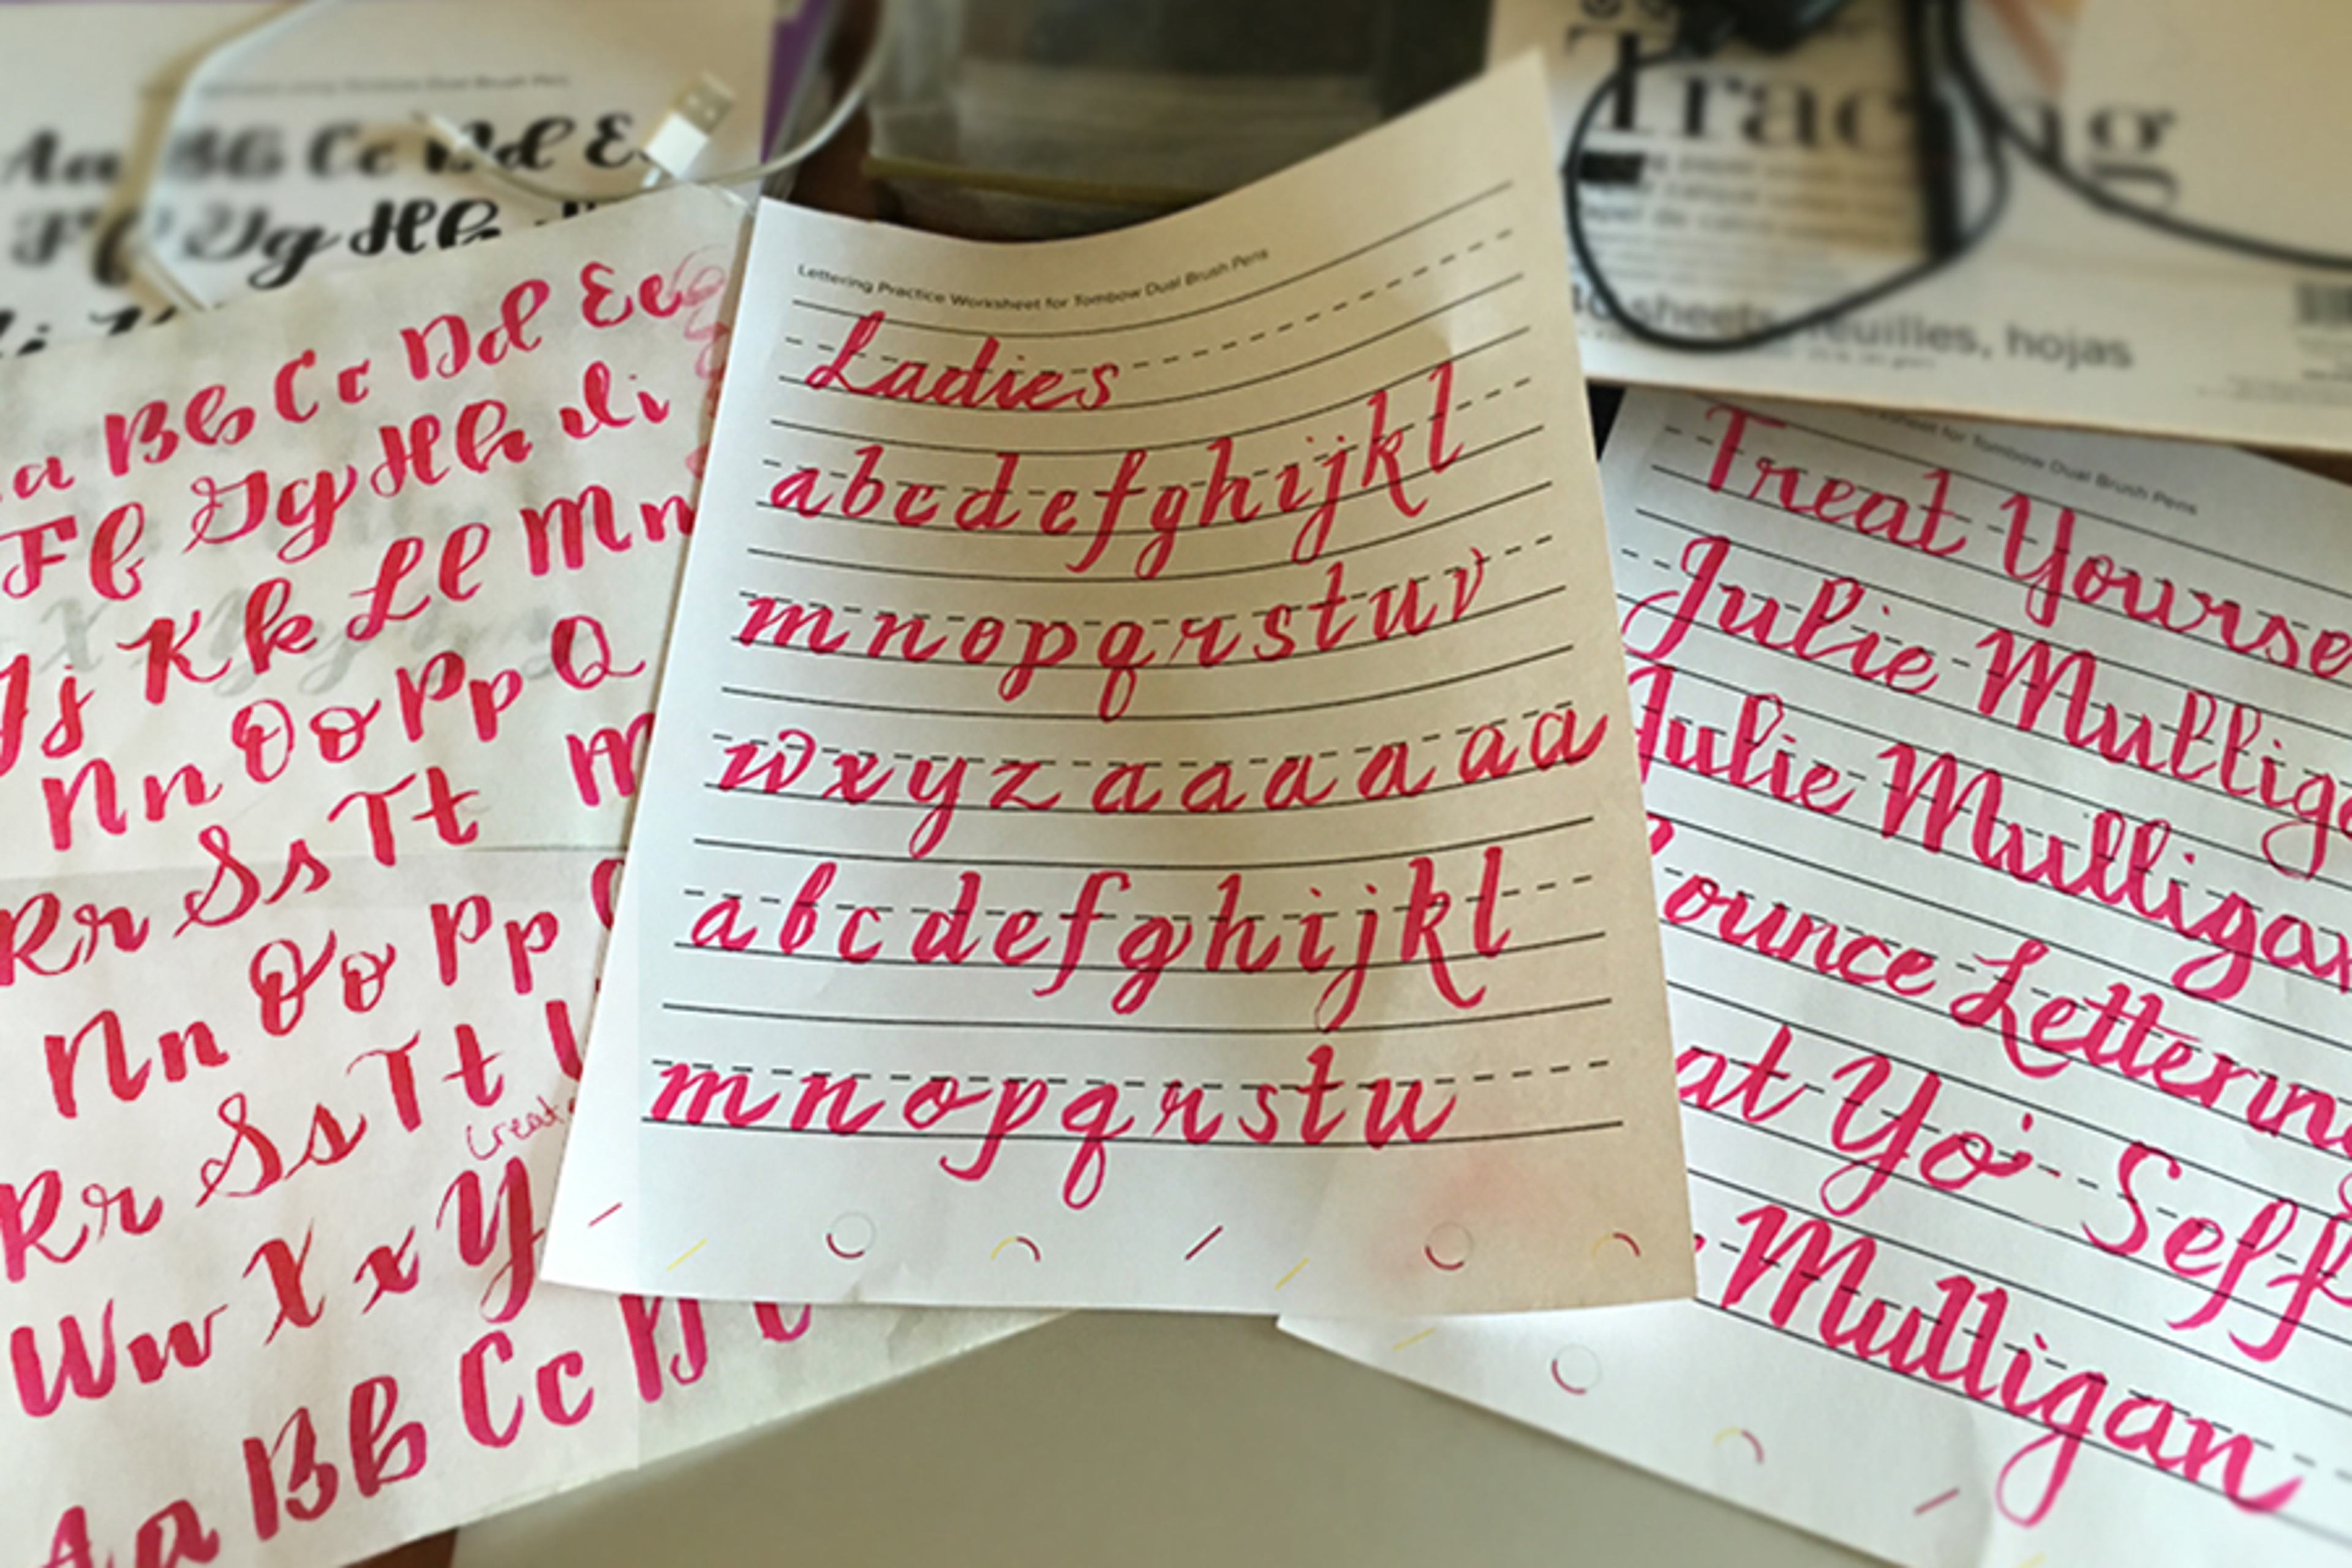 Aa Bb Cc Dd Ee
Ff Gg Hh
Tracing
40 sheets, feuilles, hojas
a Bb Cc Dd Ee
Ff Gg Hh Ii
Jj Kk Ll Mm
Nn Oo Pp Q
Rr Ss Tt
Nn Oo Pp
Rr Ss Tt
create
Ww Xx Y
Aa Bb Cc D
Lettering Practice Worksheet for Tombow Dual Brush Pens
Ladies
abcdefghijkl
mnopqrstuv
wxyz a a a a a a
abcdefghijkl
mnopqrstu
sheet for Tombow Dual Brush Pens
Treat Yourse
Julie Mullig
Julie Mulligan
ounce Lettering
at Yo' Self
Mulligan